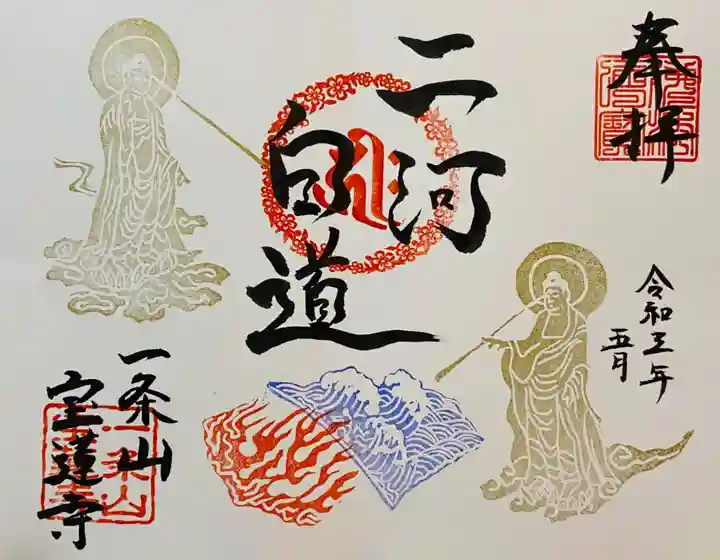 奉拝
二河
白道
令和三年
五月
一条山
宝蓮寺